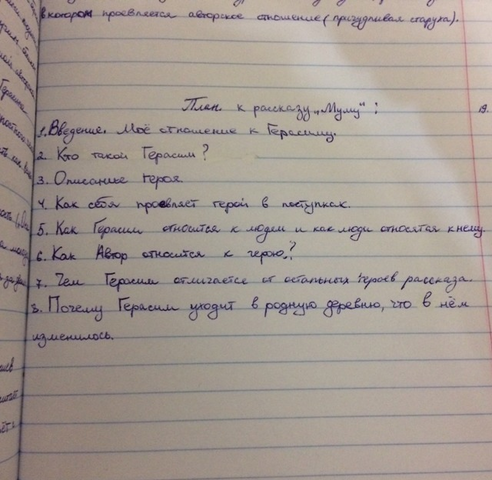 в котором проявляется авторское отношение (причудливая старуха).
План к рассказу „Муму":
19.
1. Введение. Моё отношение к Герасиму.
2. Кто такой Герасим?
3. Описание героя
4. Как себя проевляет герой в поступках.
5. Как Герасим относится к людям и как люди относятся к нему
6. Как Автор относится к герою?
7. Чем Герасим отличается от остальных героев рассказа.
8. Почему Герасим уходит в родную деревню, что в нём
изменилось.